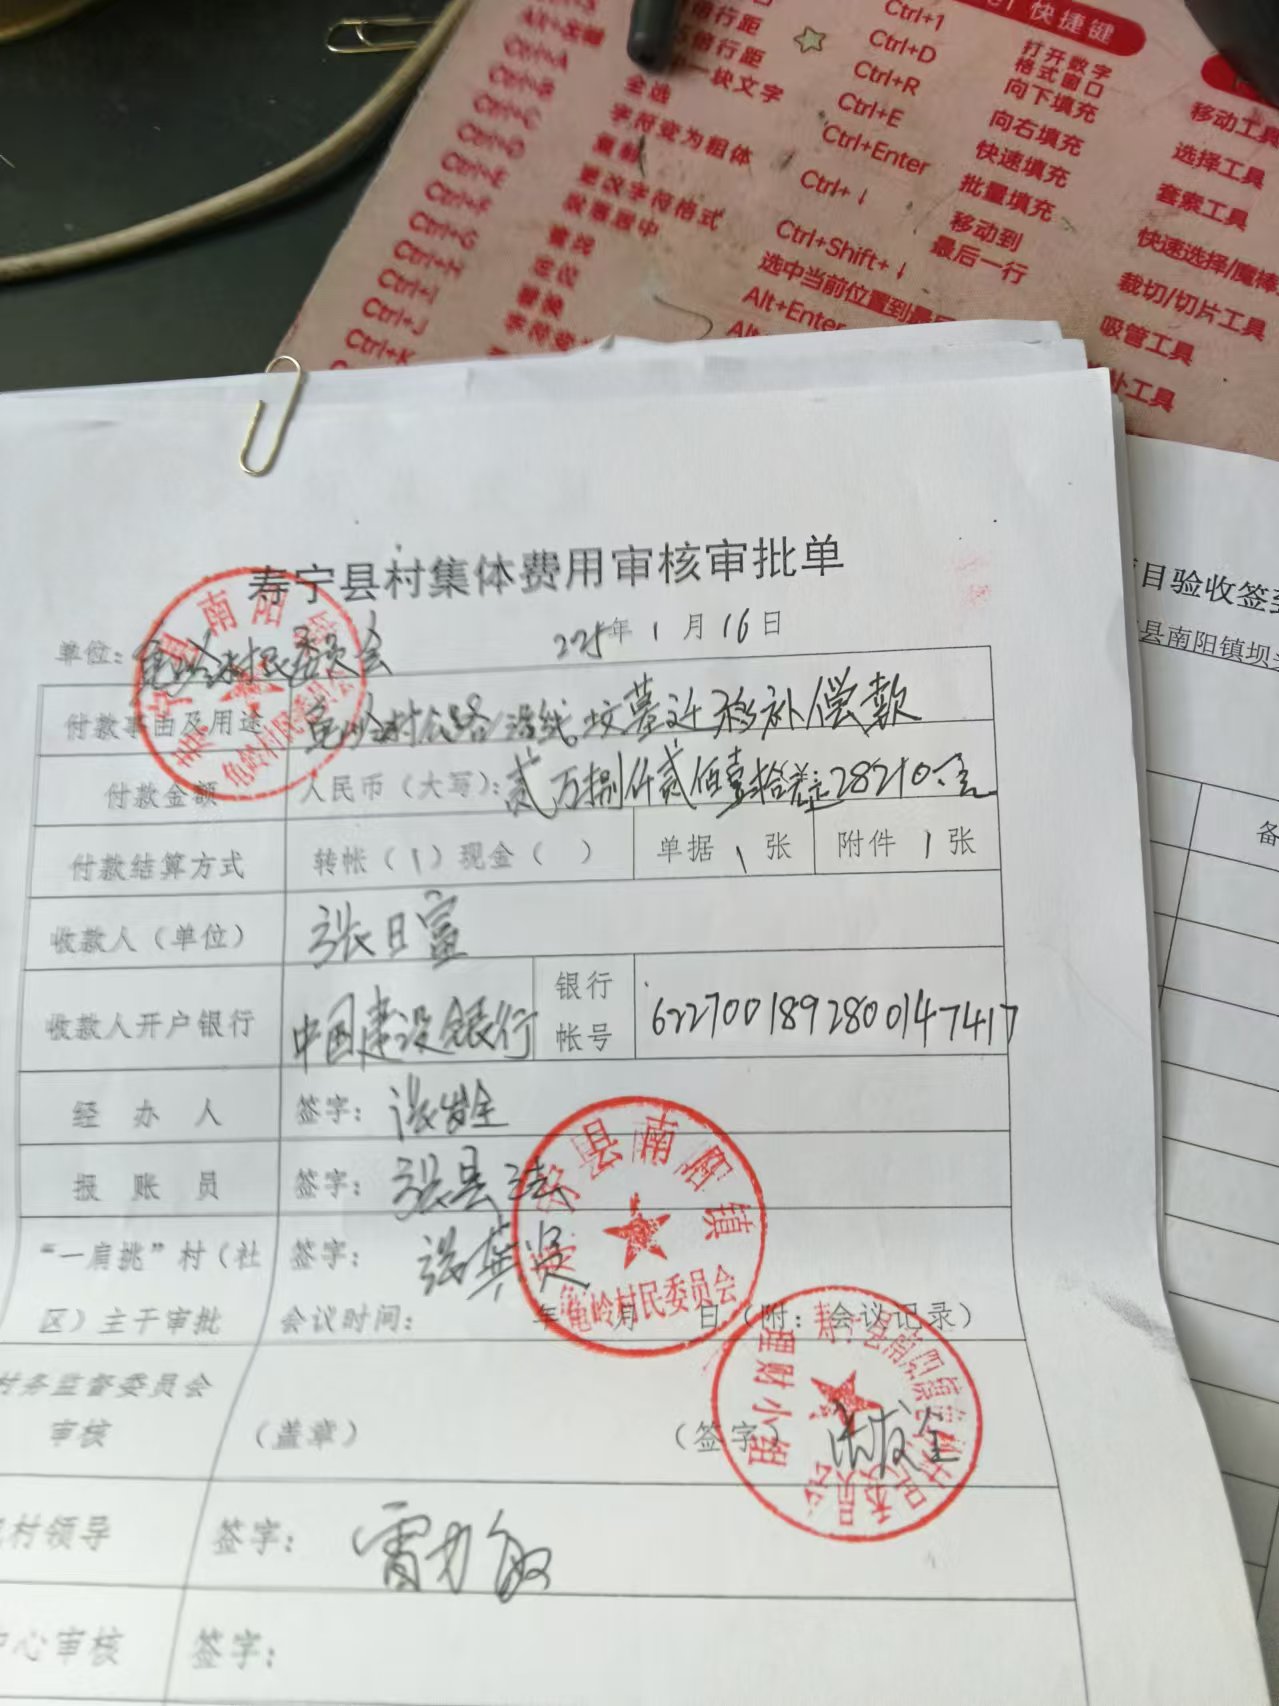 el 快捷键
Ctrl+1
打开数字
格式窗口
Ctrl+D
向下填充
Ctrl+R
向右填充
Ctrl+E
快速填充
Ctrl+Enter
批量填充
Ctrl+↓
移动到
最后一行
Ctrl+Shift+↓
选中当前位置到最
Alt+Enter
倍行距
倍行距
一块文字
全选
字符变为粗体
更改字符格式
段落居中
查找
Ctrl+J
Ctrl+K
移动工具
选择工具
套索工具
快速选择/魔棒
裁切/切片工具
吸管工具
补工具
目验收签到
县南阳镇坝
备
寿宁县村集体费用审核审批单
单位:龟岭村民委员会
2025年1月16日
付款事由及用途 龟岭村公路沿线坟墓迁移补偿款
付款金额 人民币(大写):贰万捌仟贰佰壹拾 28210.元
付款结算方式 转帐(1)现金( ) 单据1张 附件1张
收款人(单位) 张日富
收款人开户银行 中国建设银行 银行帐号 6227001892800147417
经办人 签字:张发全
报账员 签字:张县
“一肩挑”村(社区)主干审批 签字:张華贤
会议时间: 年 月 日(附:会议记录)
村务监督委员会
审核 (盖章) (签字)张发全
村领导 签字:雷力敏
中心审核 签字:
寿宁县南阳镇
龟岭村民委员会
寿宁县南阳镇
龟岭村民委员会
寿宁县南阳镇龟岭村民委员会
理财小组